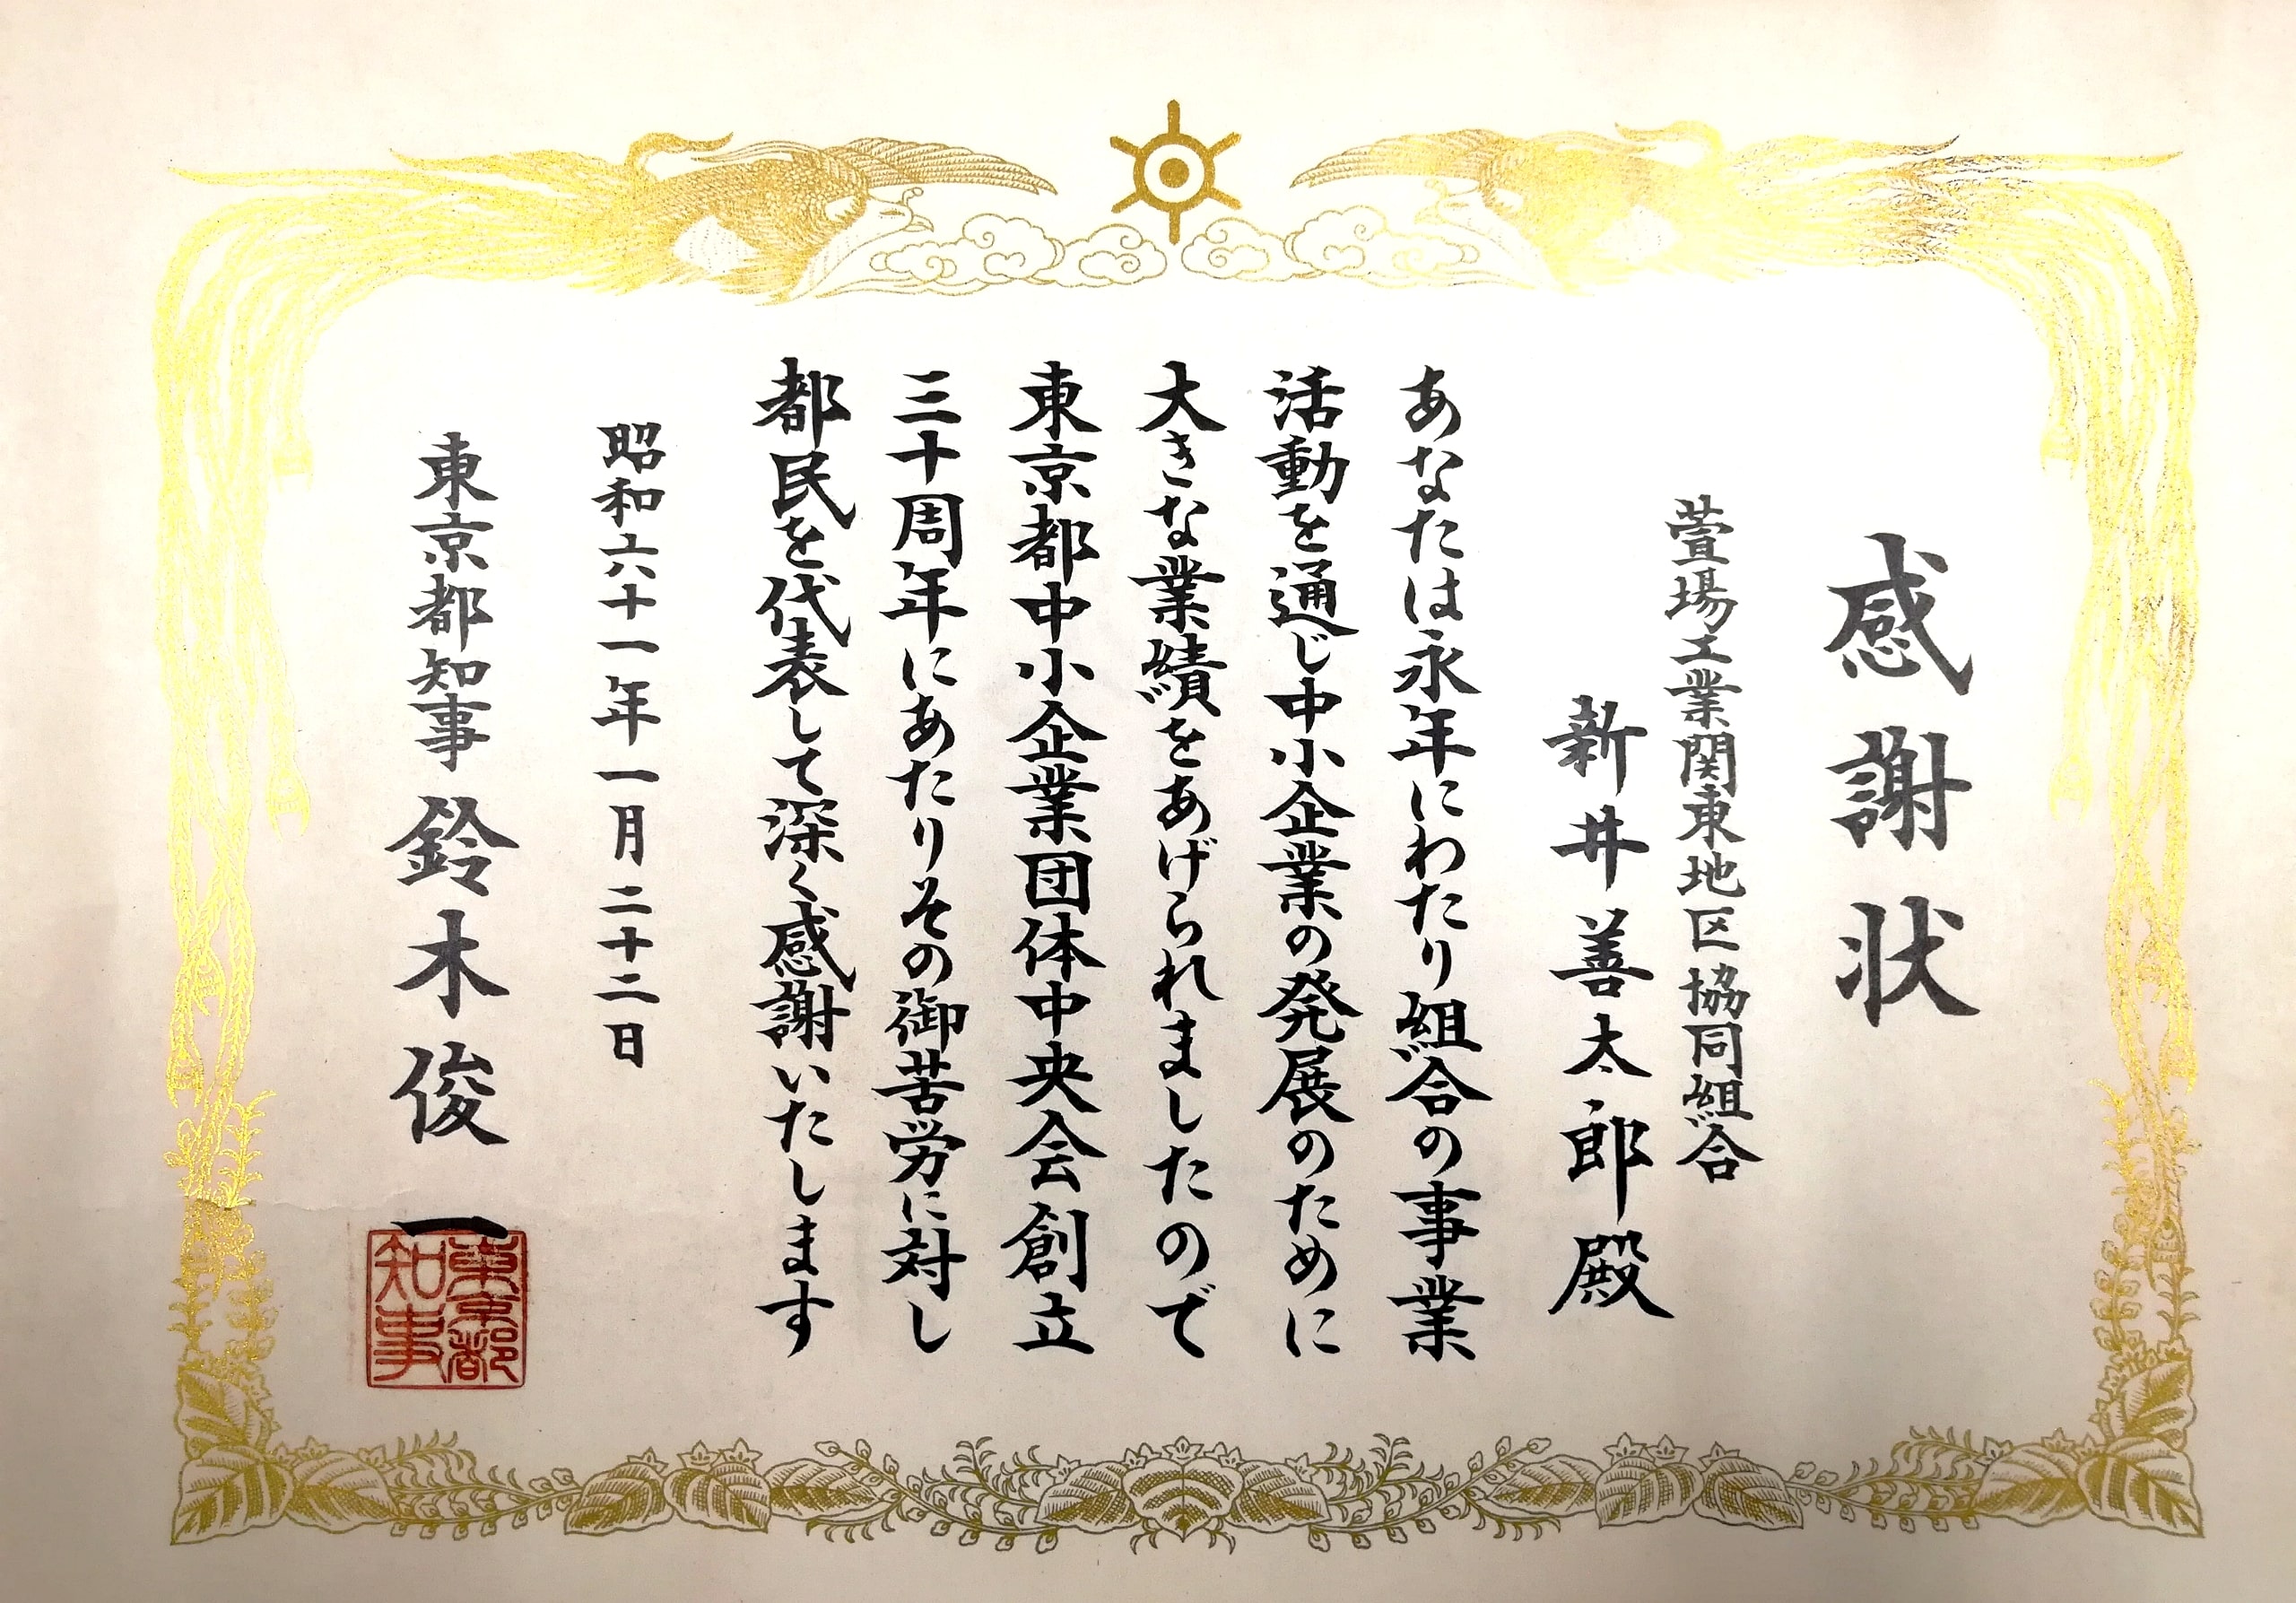 感謝状
萱場工業関東地区協同組合
新井善太郎殿
あなたは永年にわたり組合の事業
活動を通じ中小企業の発展のために
大きな業績をあげられましたので
東京都中小企業団体中央会創立
三十周年にあたりその御苦労に対し
都民を代表して深く感謝いたします
昭和六十一年一月二十二日
東京都知事 鈴木俊一
東京都
知事